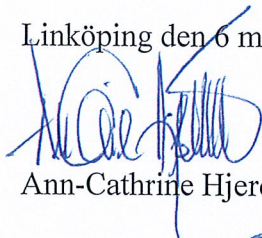 Linköping den 6 m
Ann-Cathrine Hjerd